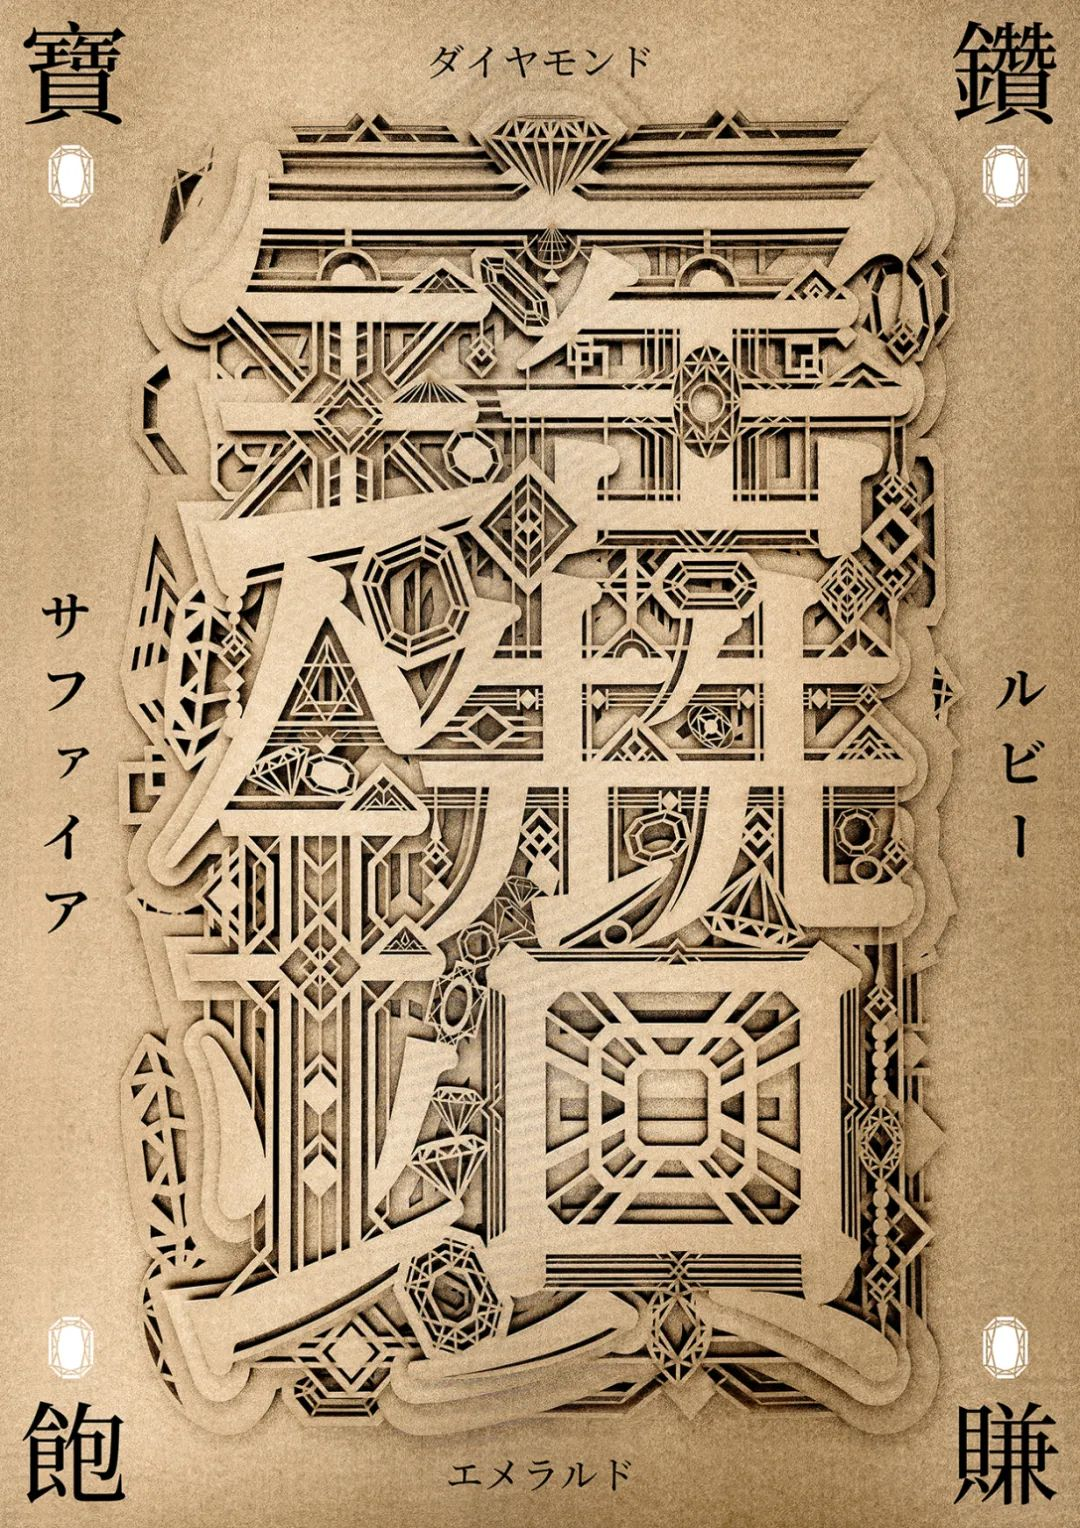 寶
鑽
ダイヤモンド
サファイア
ルビー
飽
賺
エメラルド